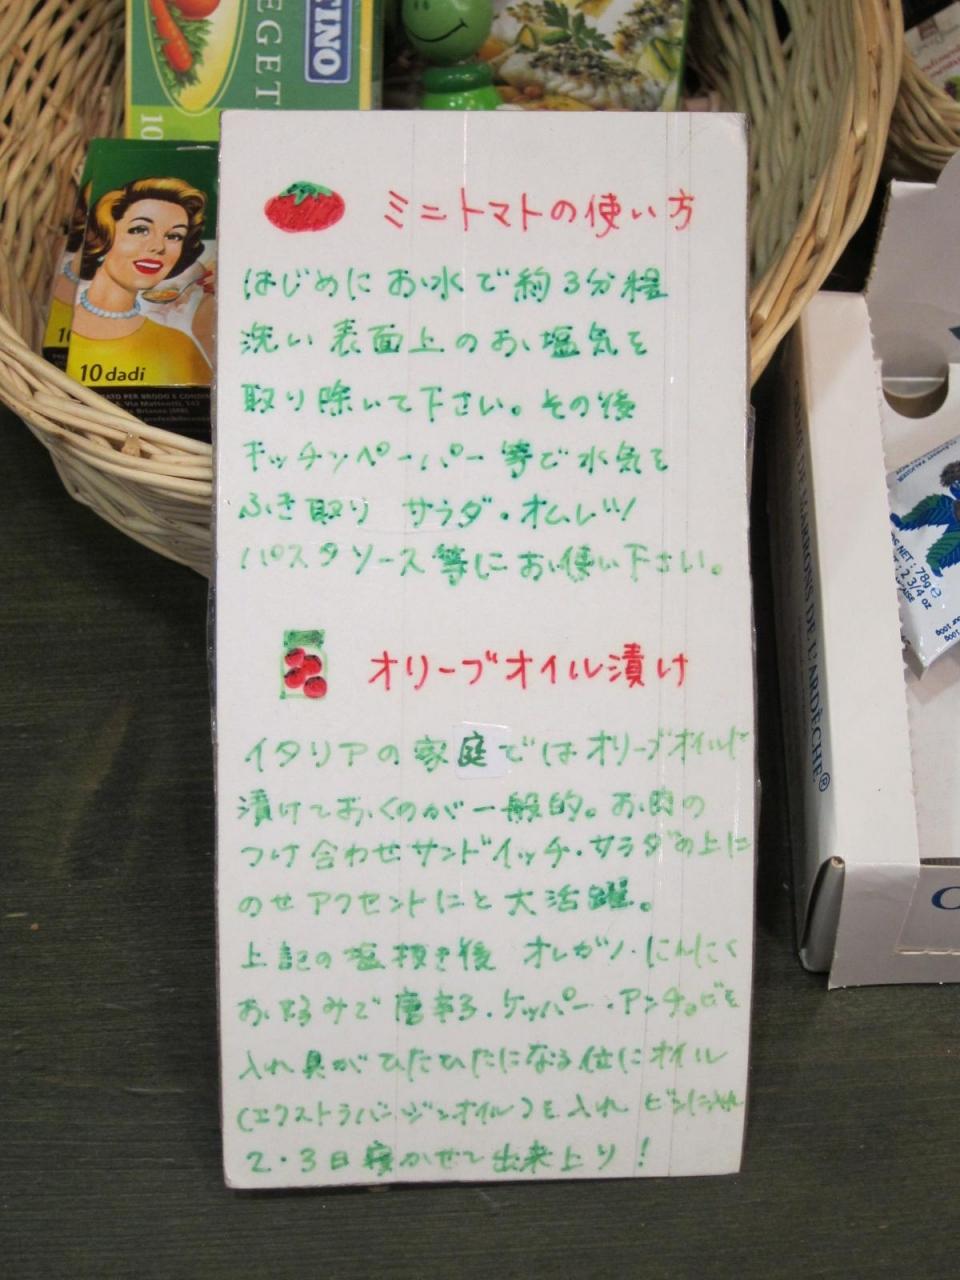 TINO
VEGET
10
10
10 dadi
ミニトマトの使い方
はじめに お水で約3分程
洗い 表面上のお塩気を
取り除いて下さい。その後
キッチンペーパー等で水気を
ふき取り サラダ・オムレツ
パスタソース等にお使い下さい。
オリーブオイル漬け
イタリアの家庭ではオリーブオイルで
漬けておくのが一般的。お肉の
つけ合わせサンドイッチ・サラダの上に
のせアクセントにと大活躍。
上記の塩抜き後 オレガノ・にんにく
お好みで唐辛子・ケッパー・アンチョビを
入れ具がひたひたになる位にオイル
(エクストラバージンオイル)を入れ ビンに入れ
2・3日寝かせて出来上り!
DE MARRONS DE L'ARDÈCHE®
NET : 78g e
2 3/4 oz
C